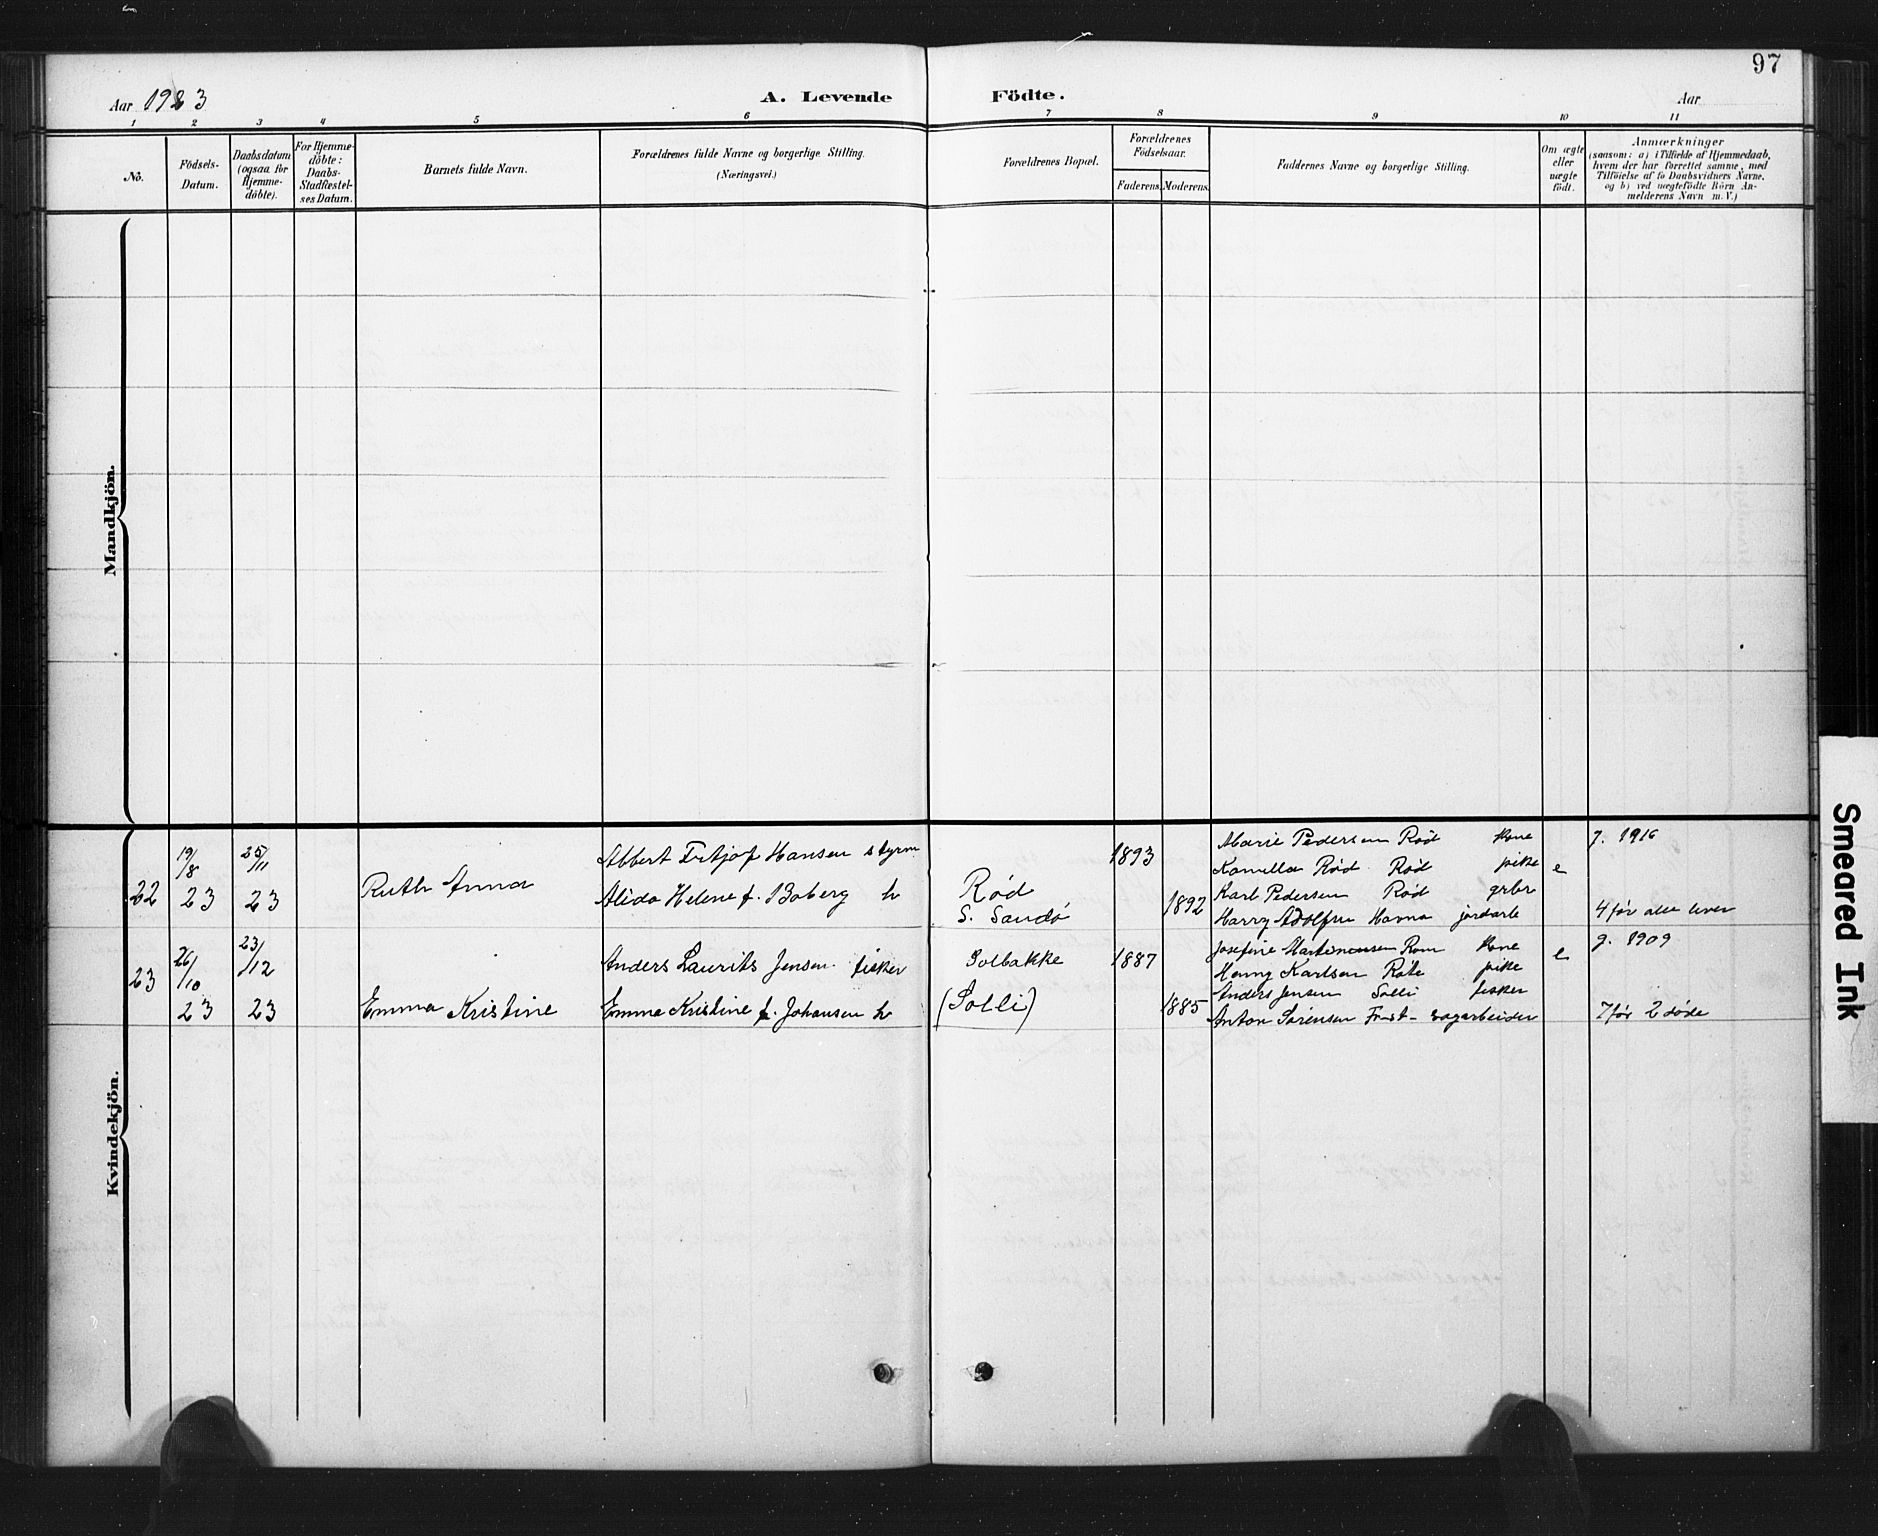 97
Aar 1923
A. Levende
Födte.
Aar
1 2 3 4 5 6 7 8 9 10 11
No.
Födsels-
Datum.
Daabsdatum
(ogsaa for
Hjemme-
döbte).
For Hjemme-
döbte:
Daabs-
Stadfæstel-
ses Datum.
Barnets fulde Navn.
Forældrenes fulde Navne og borgerlige Stilling.
(Næringsvei.)
Forældrenes Bopæl.
Forældrenes
Födselsaar.
Faderens. Moderens.
Faddernes Navne og borgerlige Stilling.
Om ægte
eller
uægte
födt.
Anmærkninger
(saasom: a) i Tilfælde af Hjemmedaab,
hvem der har forrettet samme, med
Tilföielse af to Daabsvidners Navne,
og b) ved uægtefödte Börn An-
melderens Navn m. V.)
Mandkjön.
Kvindekjön.
22
19/8
23
25/11
23
Ruth Anna
Albert Fritjof Hansen styrm
Alida Helene f. Boberg h
Rød
S. Sandø
1893
1892
Marie Pedersen Rød kone
Kamilla Rød Rød pike
Karl Pedersen Rød grbr
Harry Adolfsen Havna jordarb
e
g. 1916
4 før alle lever
23
26/10
23
23/12
23
Emma Kristine
Anders Laurits Jensen fisker
Emma Kristine f. Johansen h
Solbakke
(Solli)
1887
1885
Josefine Martinussen Rom kone
Henny Karlsen Røte pike
Anders Jensen Solli fisker
Anton Sørensen sagarbeider
e
g. 1909
7 før 2 døde
Smeared Ink